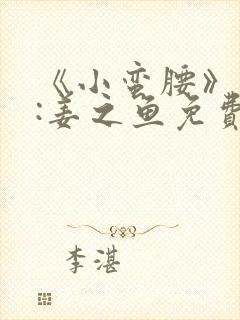 《小蛮腰》
:姜之鱼免費
李湛